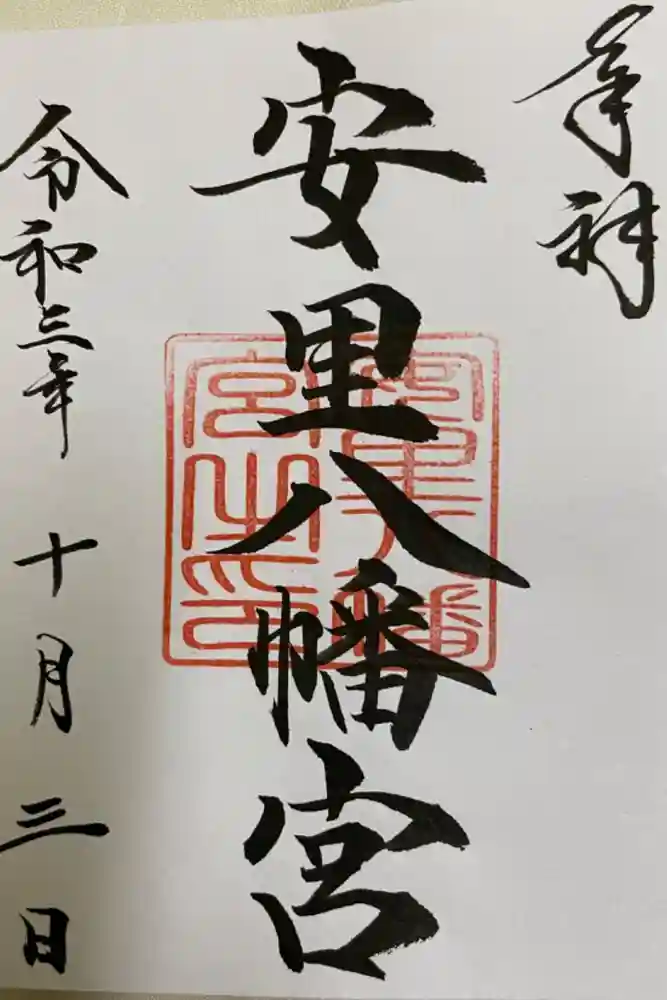 奉拝
安里八幡宮
安里八幡宮之印
令和三年十月三日